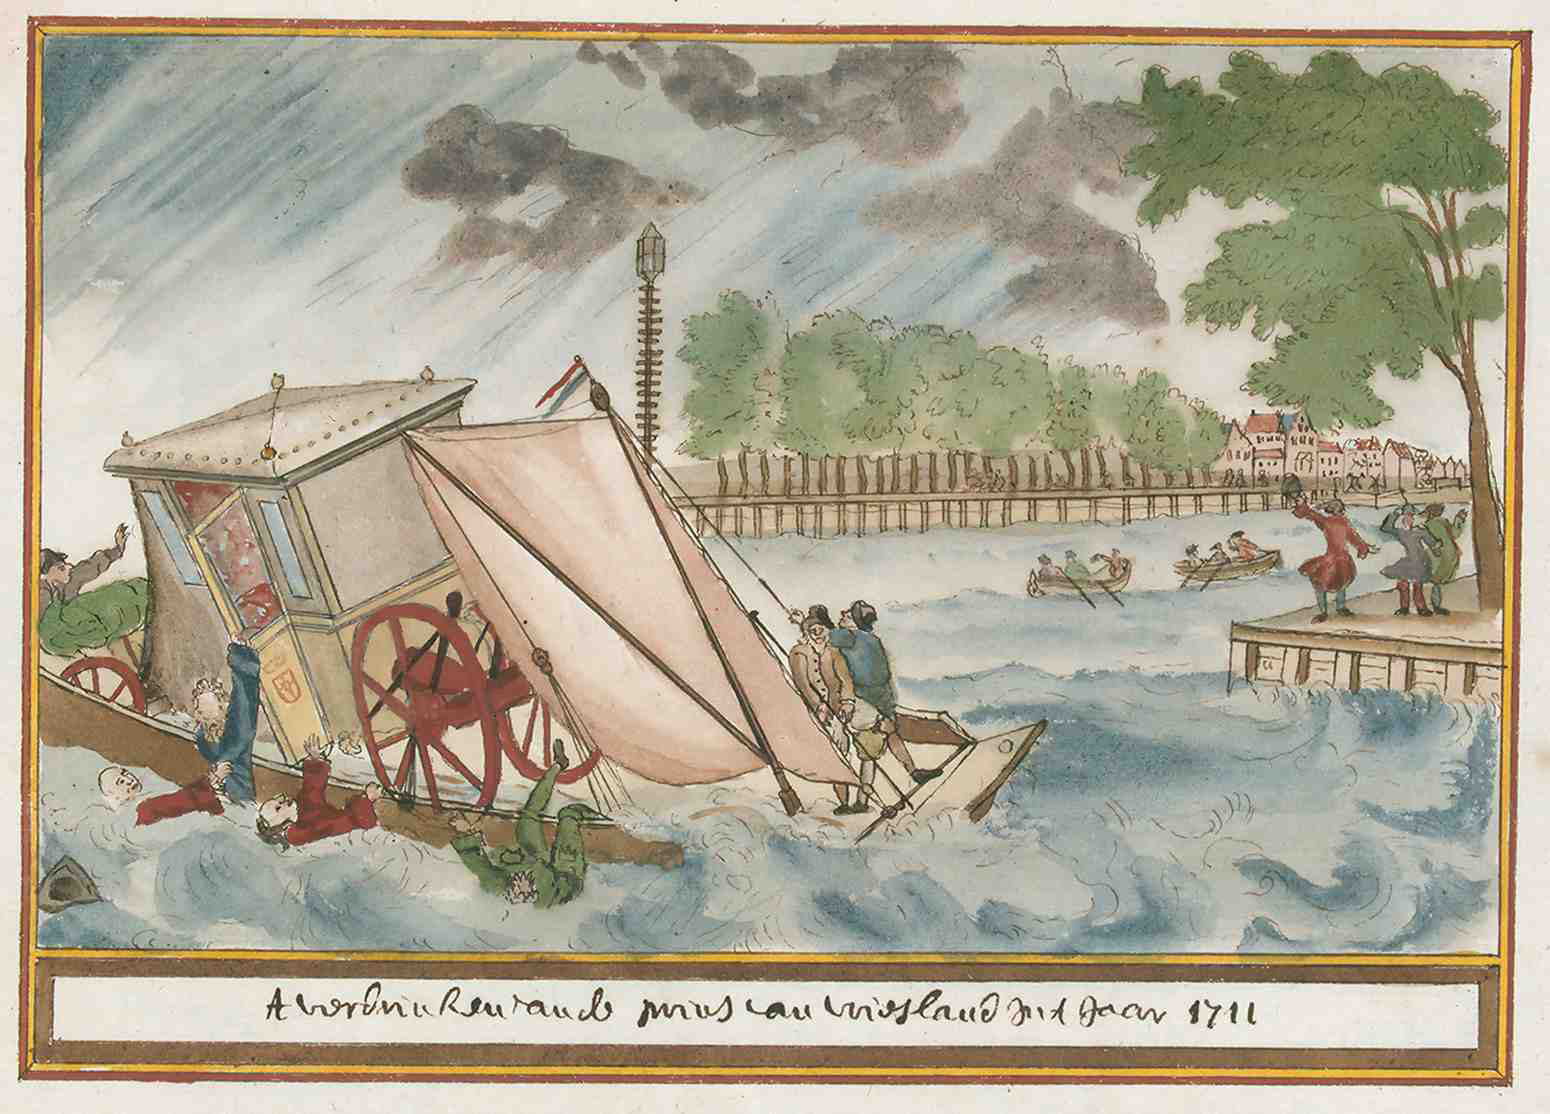 t verdrinken van de prins van vriesland in t Jaar 1711